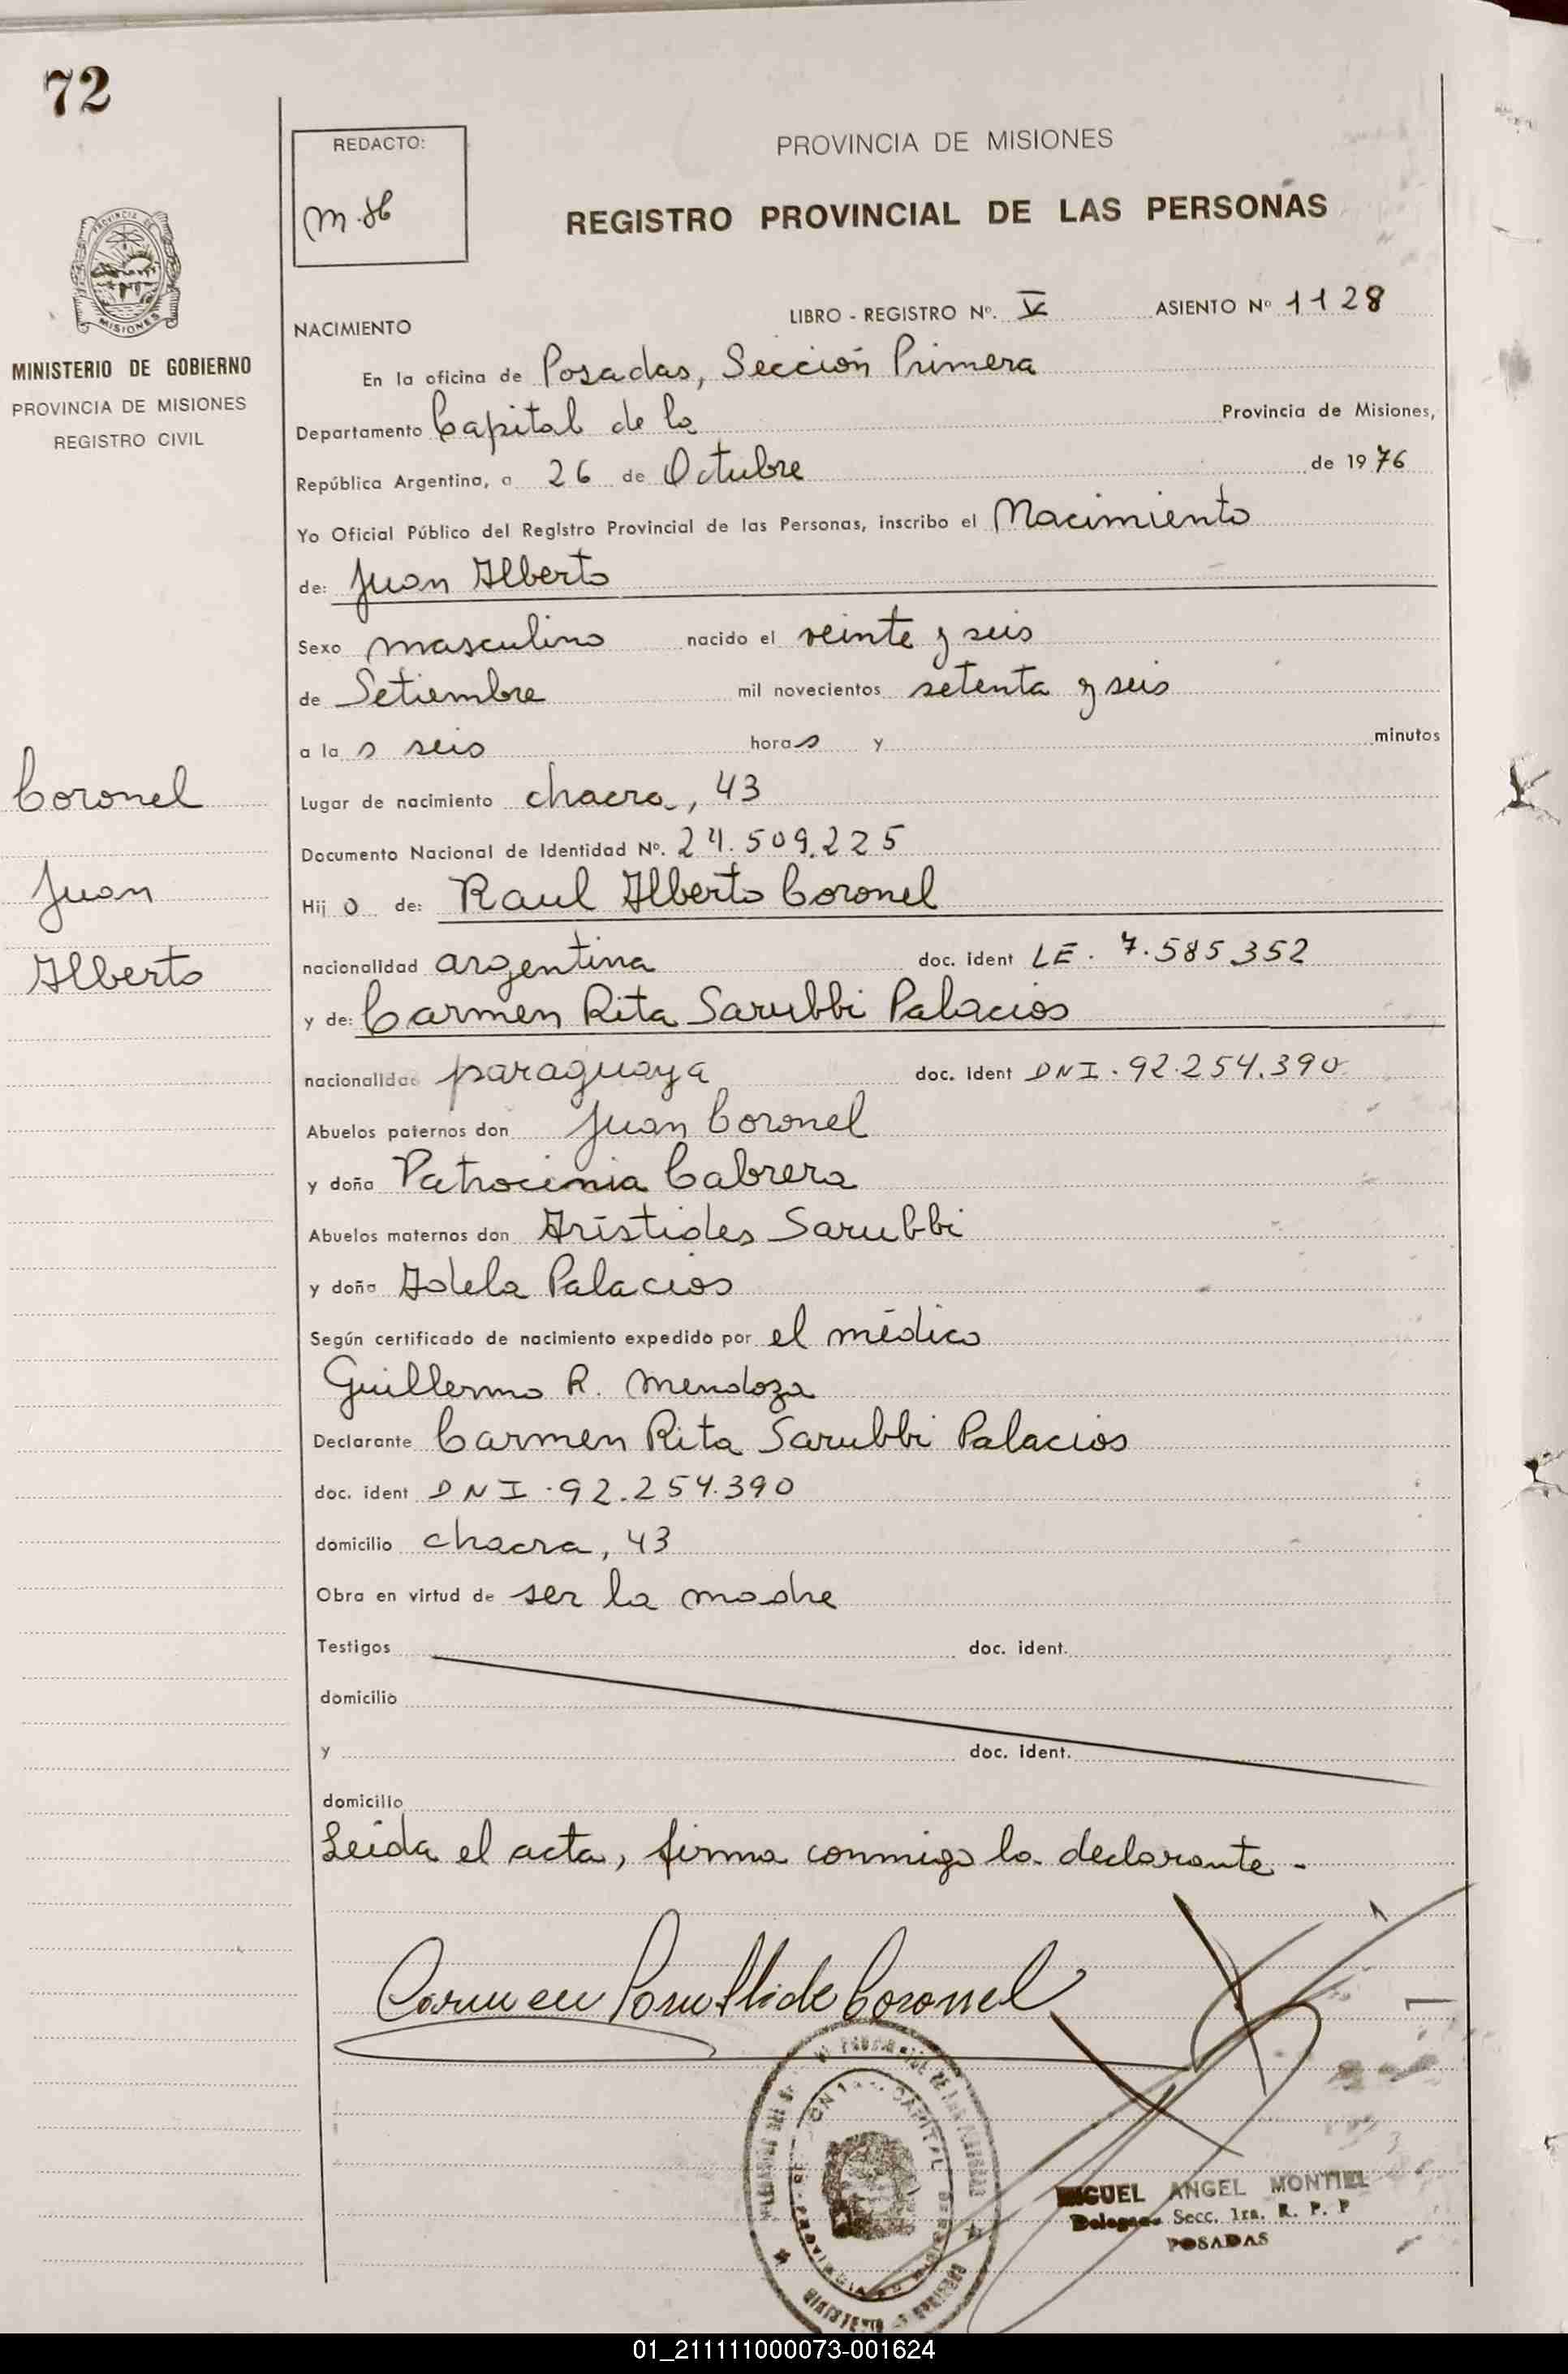 72
REDACTO:
PROVINCIA DE MISIONES
REGISTRO PROVINCIAL DE LAS PERSONAS
MISIONES
MINISTERIO DE GOBIERNO
PROVINCIA DE MISIONES
REGISTRO CIVIL
NACIMIENTO LIBRO - REGISTRO Nº. V ASIENTO Nº 1128
En la oficina de Posadas, Sección Primera
Departamento Capital de la Provincia de Misiones,
República Argentina, a 26 de Octubre de 1976
Yo Oficial Público del Registro Provincial de las Personas, inscribo el Nacimiento
de: Juan Alberto
Sexo masculino nacido el veinte y seis
de Setiembre mil novecientos setenta y seis
a las seis horas y minutos
Coronel
Lugar de nacimiento chacra, 43
Documento Nacional de Identidad Nº. 24.509.225
Juan
Hijo de: Raul Alberto Coronel
Alberto
nacionalidad argentina doc. ident LE. 7.585.352
y de: Carmen Rita Sarubbi Palacios
nacionalidad paraguaya doc. ident DNI. 92.254.390
Abuelos paternos don Juan Coronel
y doña Patrocinia Cabrera
Abuelos maternos don Arístides Sarubbi
y doña Adela Palacios
Según certificado de nacimiento expedido por el médico
Guillermo R. Mendoza
Declarante Carmen Rita Sarubbi Palacios
doc. ident DNI. 92.254.390
domicilio chacra, 43
Obra en virtud de ser la madre
Testigos doc. ident.
domicilio
y doc. ident.
domicilio
Leída el acta, firma conmigo la declarante.-
Carmen Sarubbi de Coronel
MIGUEL ANGEL MONTIEL
Delegado Secc. 1ra. R. P. P
POSADAS
01_211111000073-001624